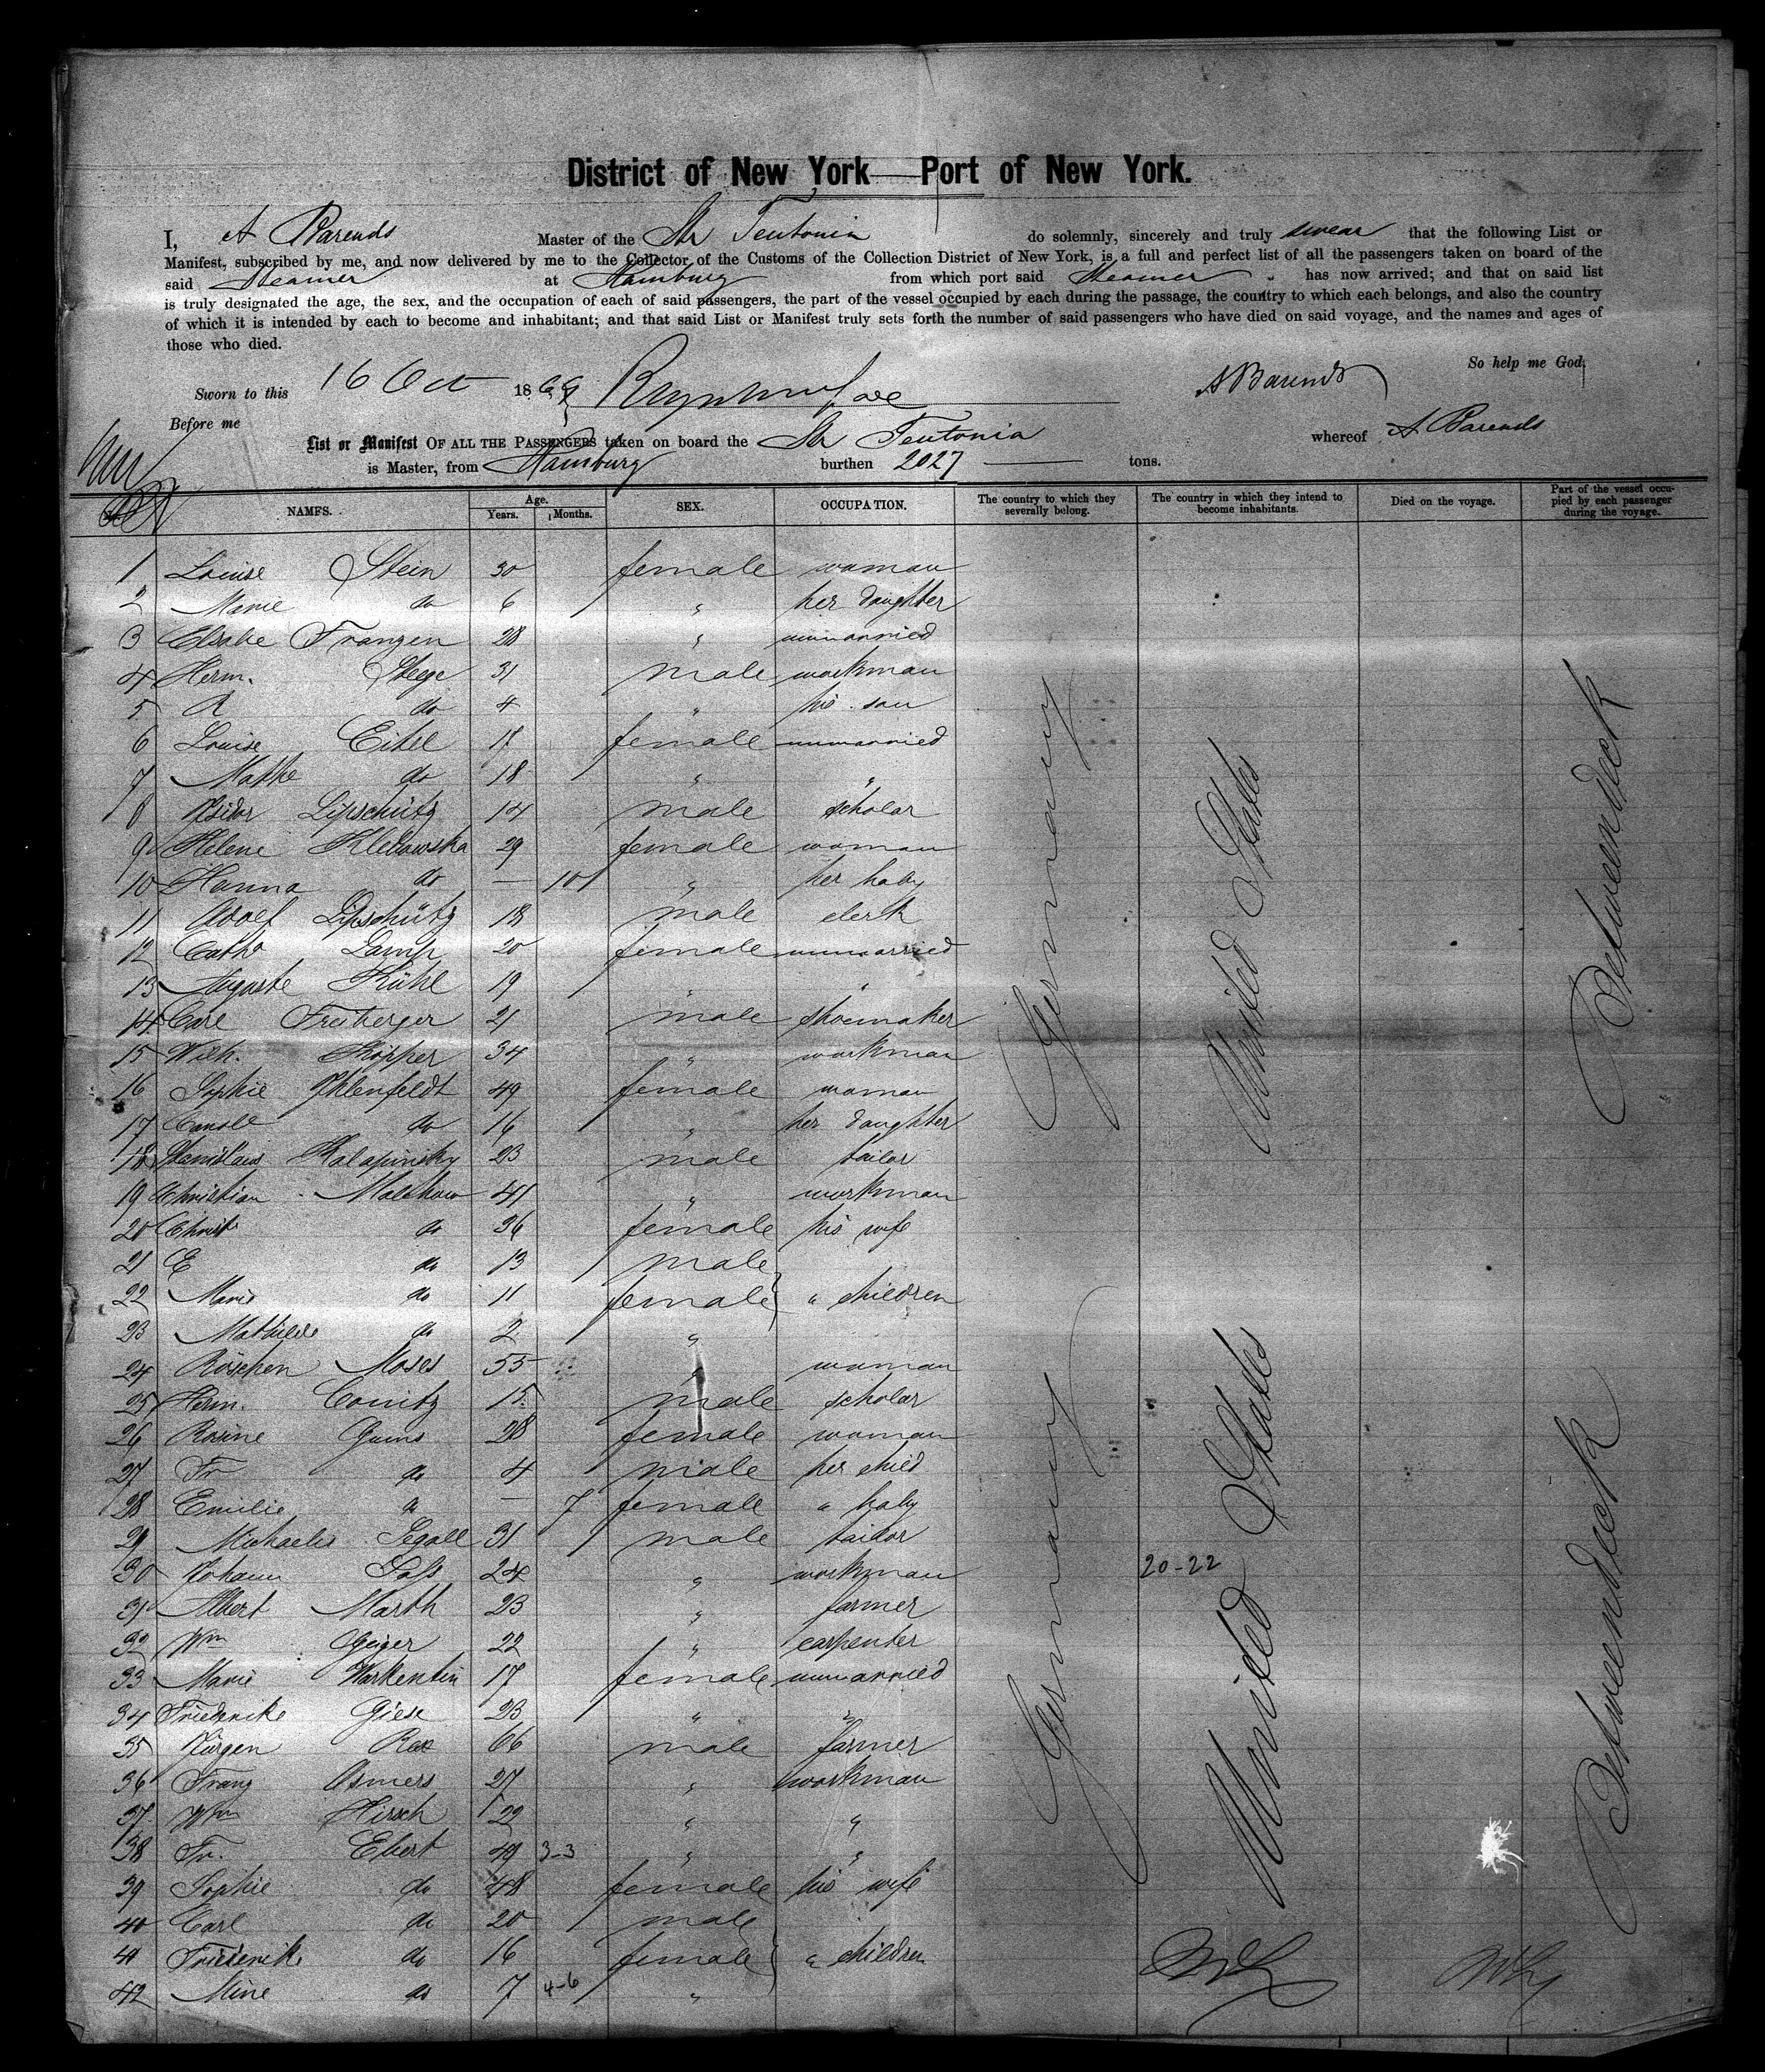 District of New York—Port of New York.
I, A Barends Master of the Str Teutonia do solemnly, sincerely and truly swear that the following List or
Manifest, subscribed by me, and now delivered by me to the Collector of the Customs of the Collection District of New York, is a full and perfect list of all the passengers taken on board of the
said Steamer at Hamburg from which port said Steamer has now arrived; and that on said list
is truly designated the age, the sex, and the occupation of each of said passengers, the part of the vessel occupied by each during the passage, the country to which each belongs, and also the country
of which it is intended by each to become and inhabitant; and that said List or Manifest truly sets forth the number of said passengers who have died on said voyage, and the names and ages of
those who died.
So help me God.
Sworn to this 16 Oct 1869 A Barends
Before me
List or Manifest OF ALL THE PASSENGERS taken on board the Str Teutonia whereof A Barends
is Master, from Hamburg burthen 2027 tons.
NAMES. Age. Years. Months. SEX. OCCUPATION. The country to which they severally belong. The country in which they intend to become inhabitants. Died on the voyage. Part of the vessel occupied by each passenger during the voyage.
1 Louise Stein 30 female woman
2 Marie do 6 " her daughter
3 Elsabe Franzen 28 " unmarried
4 Herm. Steege 31 male workman
5 R do 4 " his son
6 Louise Eitel 17 female unmarried
7 Mathe do 18 " "
8 Isidor Lipschütz 14 male scholar
9 Helene Klebowska 29 female woman
10 Hanna do — 10 " her baby
11 Adolf Lipschütz 18 male clerk
12 Catha Lamp 20 female unmarried
13 Auguste Kühl 19 " "
14 Carl Freiberger 21 male shoemaker
15 Wilh. Köpper 34 " workman
16 Sophie Ihlenfeldt 49 female woman
17 Caroll do 16 " her daughter
18 Stanislaus Kalapinsky 23 male tailor
19 Christian Malchow 41 " workman
20 Christ do 36 female his wife
21 E do 13 male
22 Marie do 11 female " children
23 Mathilde do 2 "
24 Röschen Moses 55 " woman
25 Herm. Conitz 15 male scholar
26 Rosine Guins 28 female woman
27 Fr do 4 male her child
28 Emilie do — 7 female " baby
29 Michaelis Segall 31 male tailor
30 Johann Sass 24 " workman
31 Albert Marth 23 " farmer
32 Wm Geiger 22 " carpenter
33 Marie Warkentin 17 female unmarried
34 Friederike Giese 23 " "
35 Jürgen Rax 66 male farmer
36 Franz Asmers 27 " workman
37 Wm Hirsch 22 " "
38 Fr. Ebert 49 3-3 " "
39 Sophie do 48 female his wife
40 Carl do 20 male
41 Friederike do 16 female " children
42 Mine do 7 4-6 "
Germany
United States
Betweendeck
Germany
20-22
United States
Betweendeck